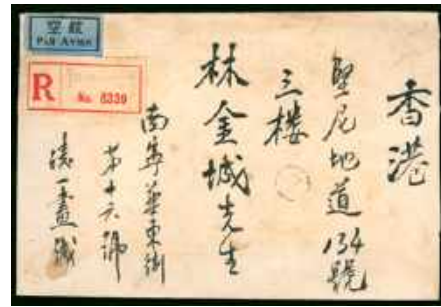 空航
PAR AVION
R
No. 8339
香港
堅尼地道134號
三樓
林金城先生
南寧華東街
第十六號